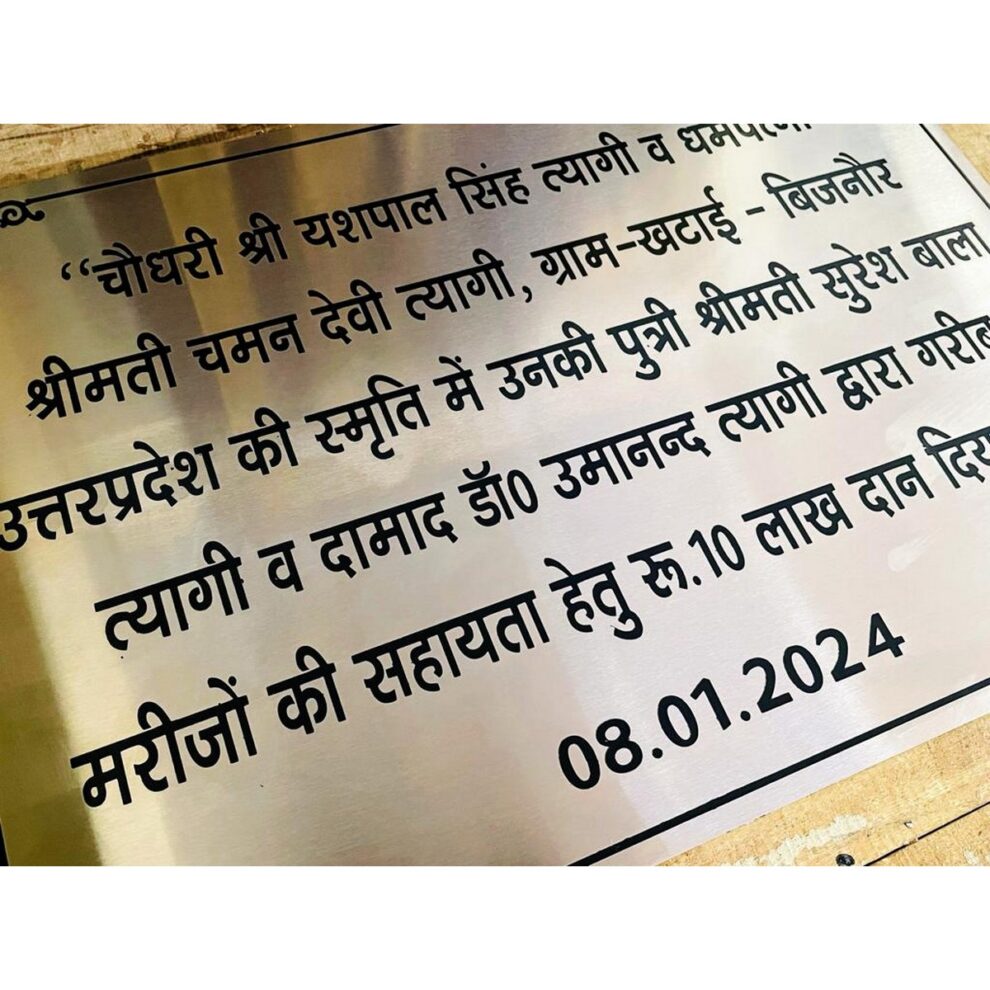 “चौधरी श्री यशपाल सिंह त्यागी व धर्मपत्नी
श्रीमती चमन देवी त्यागी, ग्राम-खटाई - बिजनौर
उत्तरप्रदेश की स्मृति में उनकी पुत्री श्रीमती सुरेश बाला
त्यागी व दामाद डॉ0 उमानन्द त्यागी द्वारा गरीब
मरीजों की सहायता हेतु रू.10 लाख दान
08.01.2024